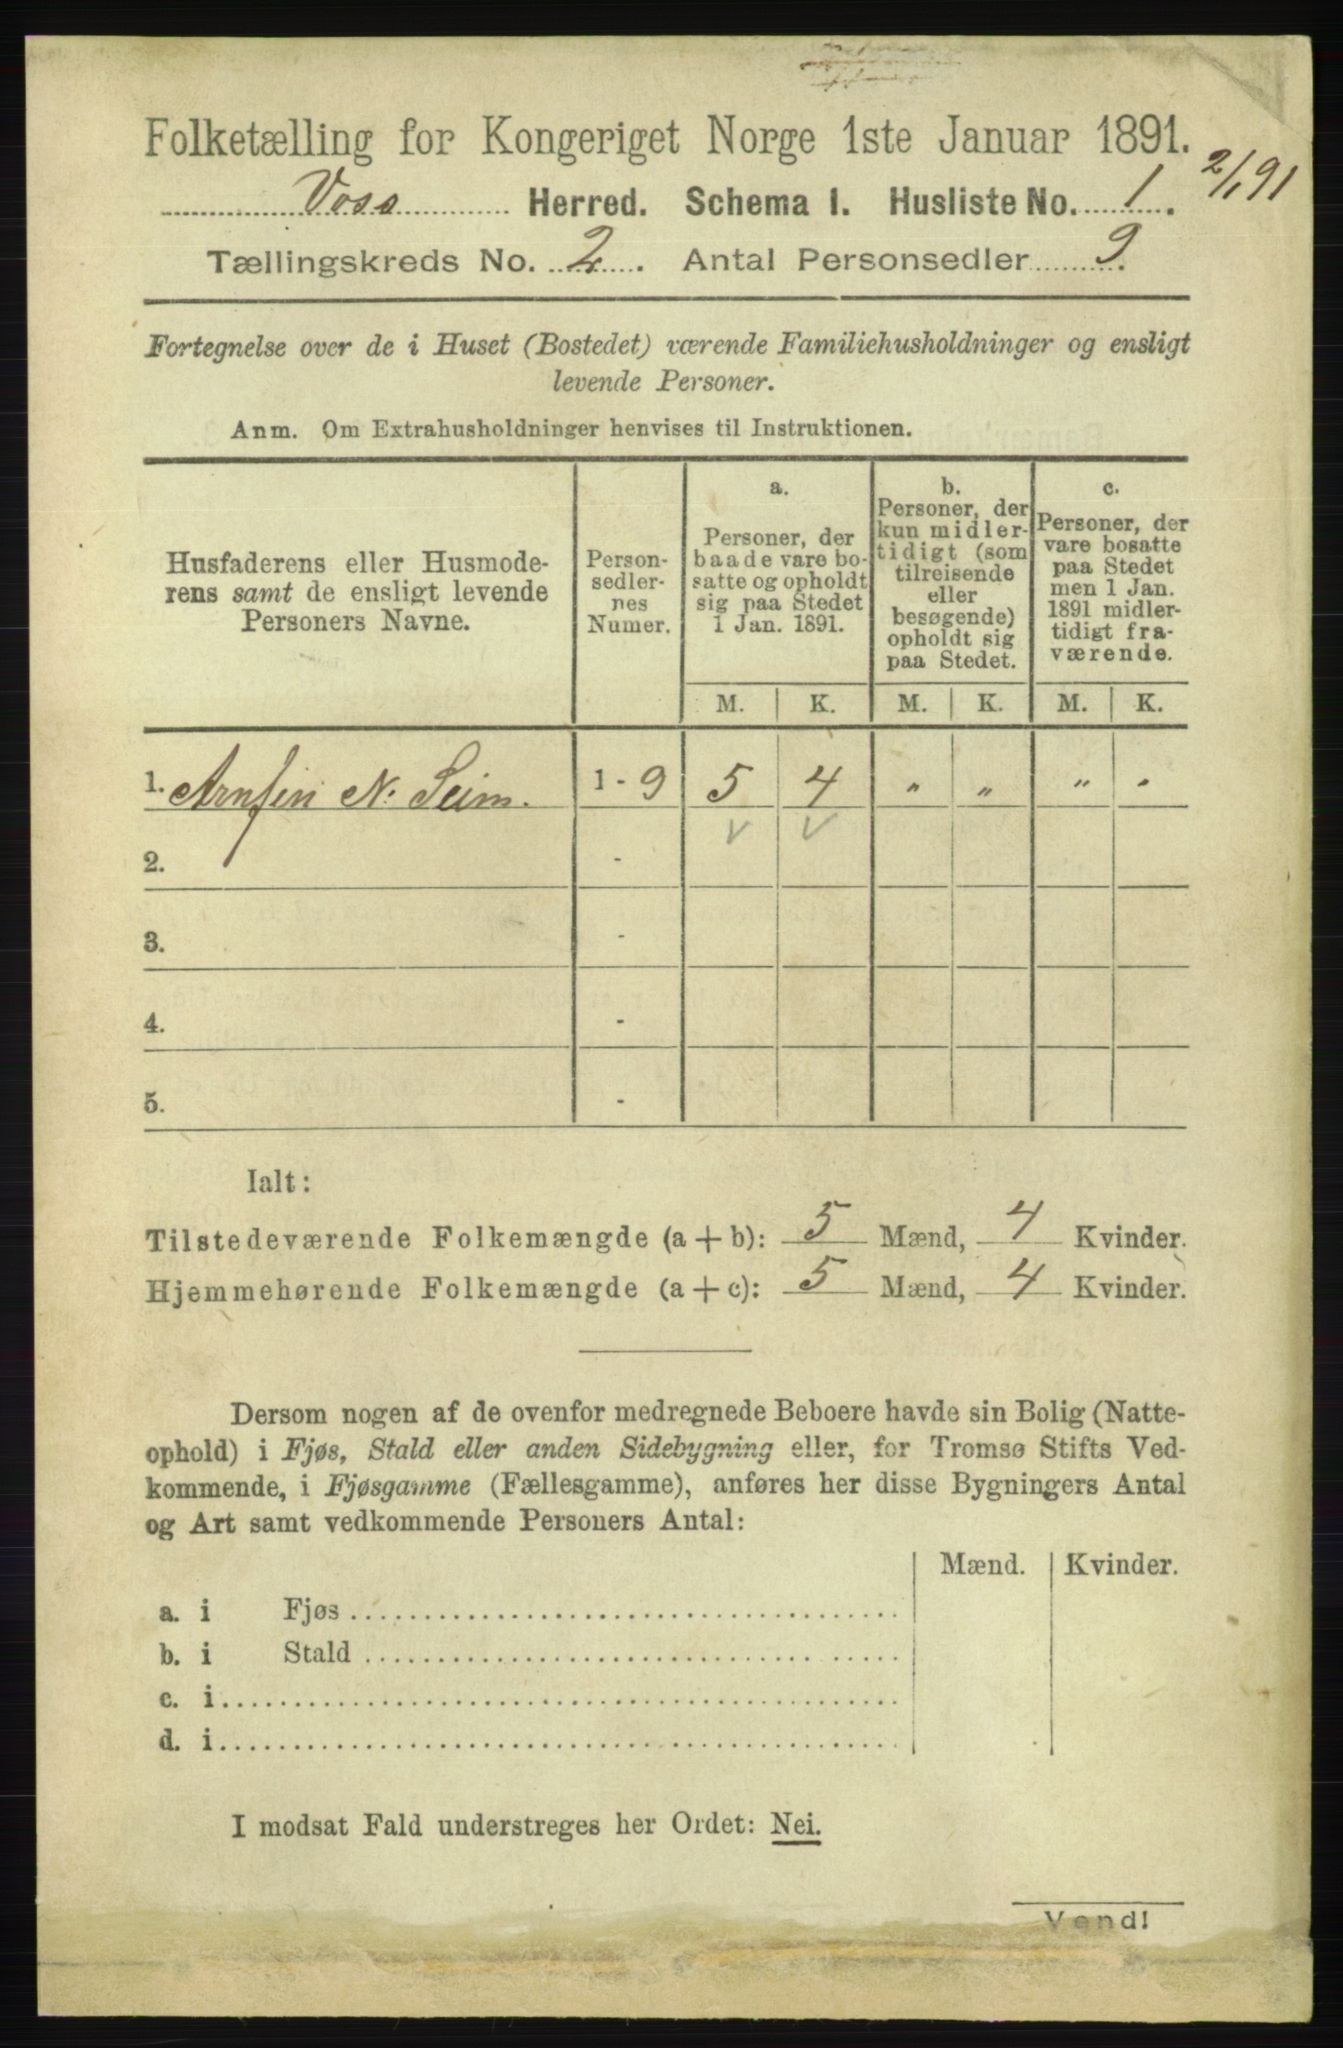 Folketælling for Kongeriget Norge 1ste Januar 1891.
Voss Herred. Schema I. Husliste No. 1. 2/1 91
Tællingskreds No. 2. Antal Personsedler 9.
Fortegnelse over de i Huset (Bostedet) værende Familiehusholdninger og ensligt
levende Personer.
Anm. Om Extrahusholdninger henvises til Instruktionen.
Husfaderens eller Husmode-
rens samt de ensligt levende
Personers Navne.
Person-
sedler-
nes
Numer.
a.
Personer, der
baade vare bo-
satte og opholdt
sig paa Stedet
1 Jan. 1891.
b.
Personer, der
kun midler-
tidigt (som
tilreisende
eller
besøgende)
opholdt sig
paa Stedet.
c.
Personer, der
vare bosatte
paa Stedet
men 1 Jan.
1891 midler-
tidigt fra-
værende.
M. K. M. K. M. K.
1. Arnfin N. Seim. 1 - 9 5 4 " " " "
2. -
3. -
4. -
5. -
Ialt:
Tilstedeværende Folkemængde (a + b): 5 Mænd, 4 Kvinder.
Hjemmehørende Folkemængde (a + c): 5 Mænd, 4 Kvinder.
Dersom nogen af de ovenfor medregnede Beboere havde sin Bolig (Natte-
ophold) i Fjøs, Stald eller anden Sidebygning eller, for Tromsø Stifts Ved-
kommende, i Fjøsgamme (Fællesgamme), anføres her disse Bygningers Antal
og Art samt vedkommende Personers Antal:
Mænd. Kvinder.
a. i Fjøs
b. i Stald
c. i
d. i
I modsat Fald understreges her Ordet: Nei.
Vend!